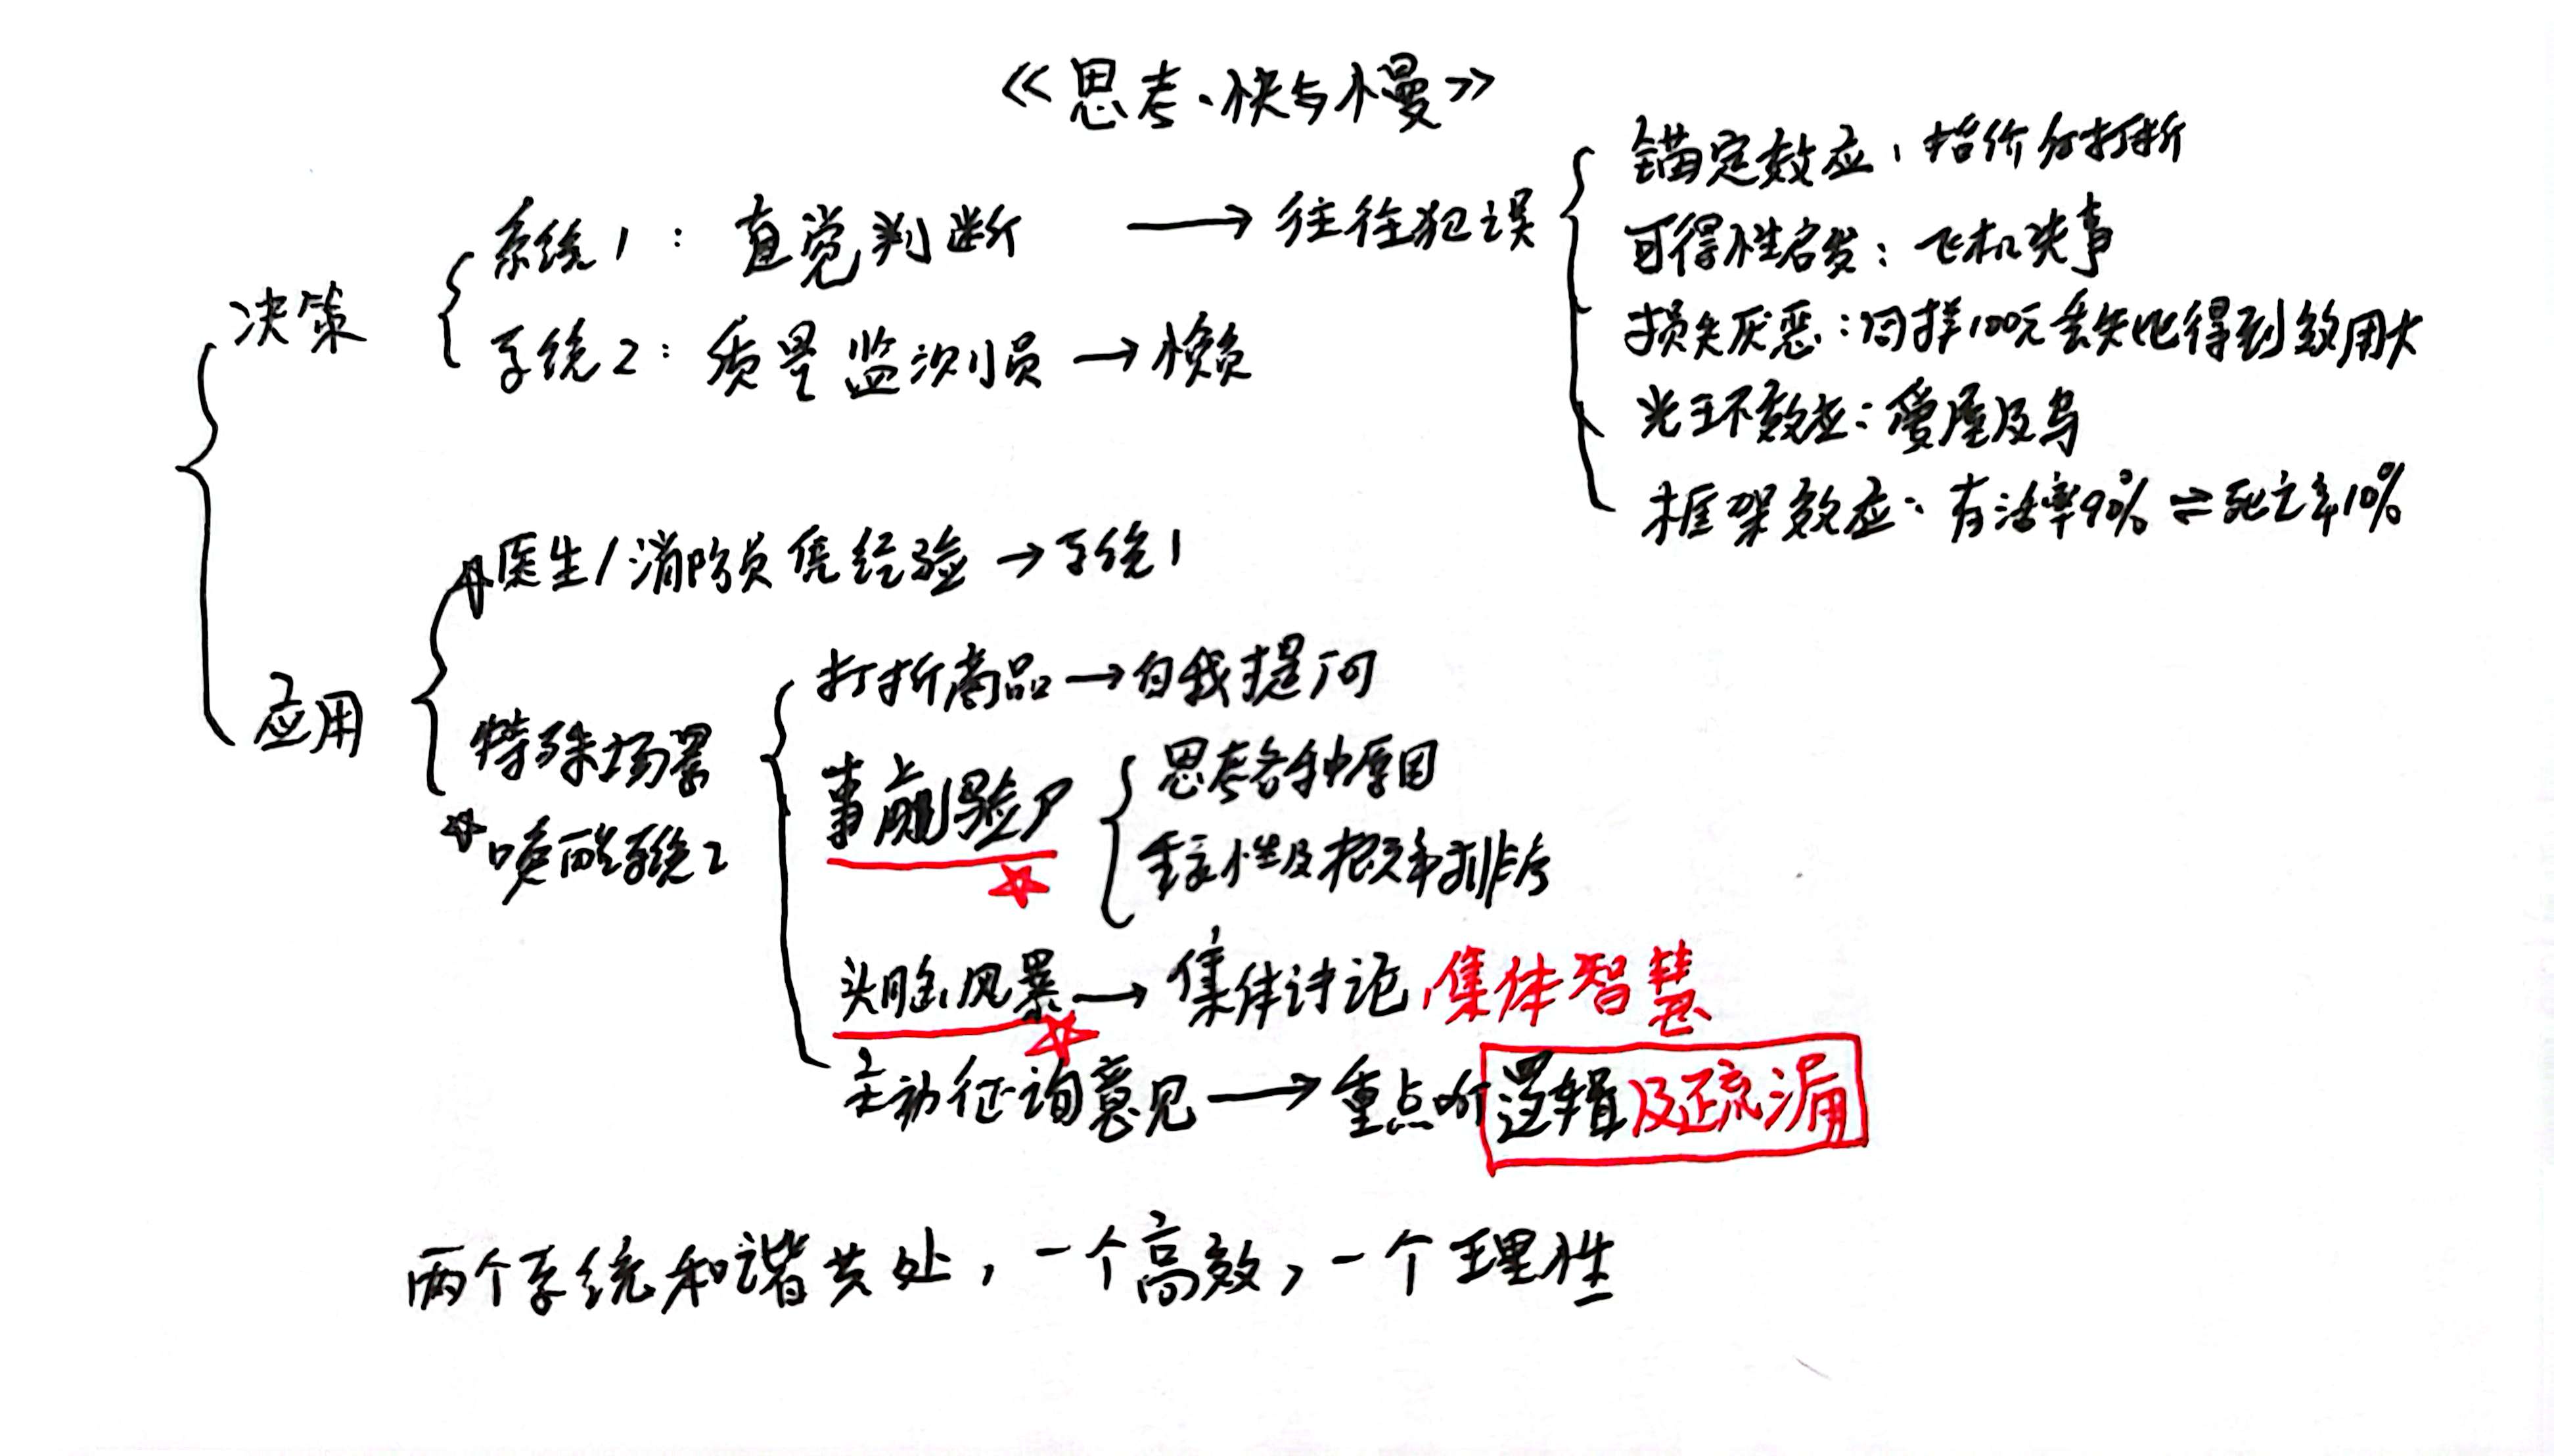 《思考、快与慢》
决策
系统1：直觉判断 → 往往犯误
系统2：质量监测员 → 懒
锚定效应：标价和打折
可得性启发：飞机失事
损失厌恶：同样100元丢失比得到效用大
光环效应：爱屋及乌
框架效应：存活率90% ⇌ 死亡率10%
应用
医生/消防员凭经验 → 系统1
特殊场景
唤醒系统2
打折商品 → 自我提问
事前验尸
思考各种原因
重要性及概率排序
头脑风暴 → 集体讨论，集体智慧
主动征询意见 → 重点听逻辑及疏漏
两个系统和谐共处，一个高效，一个理性